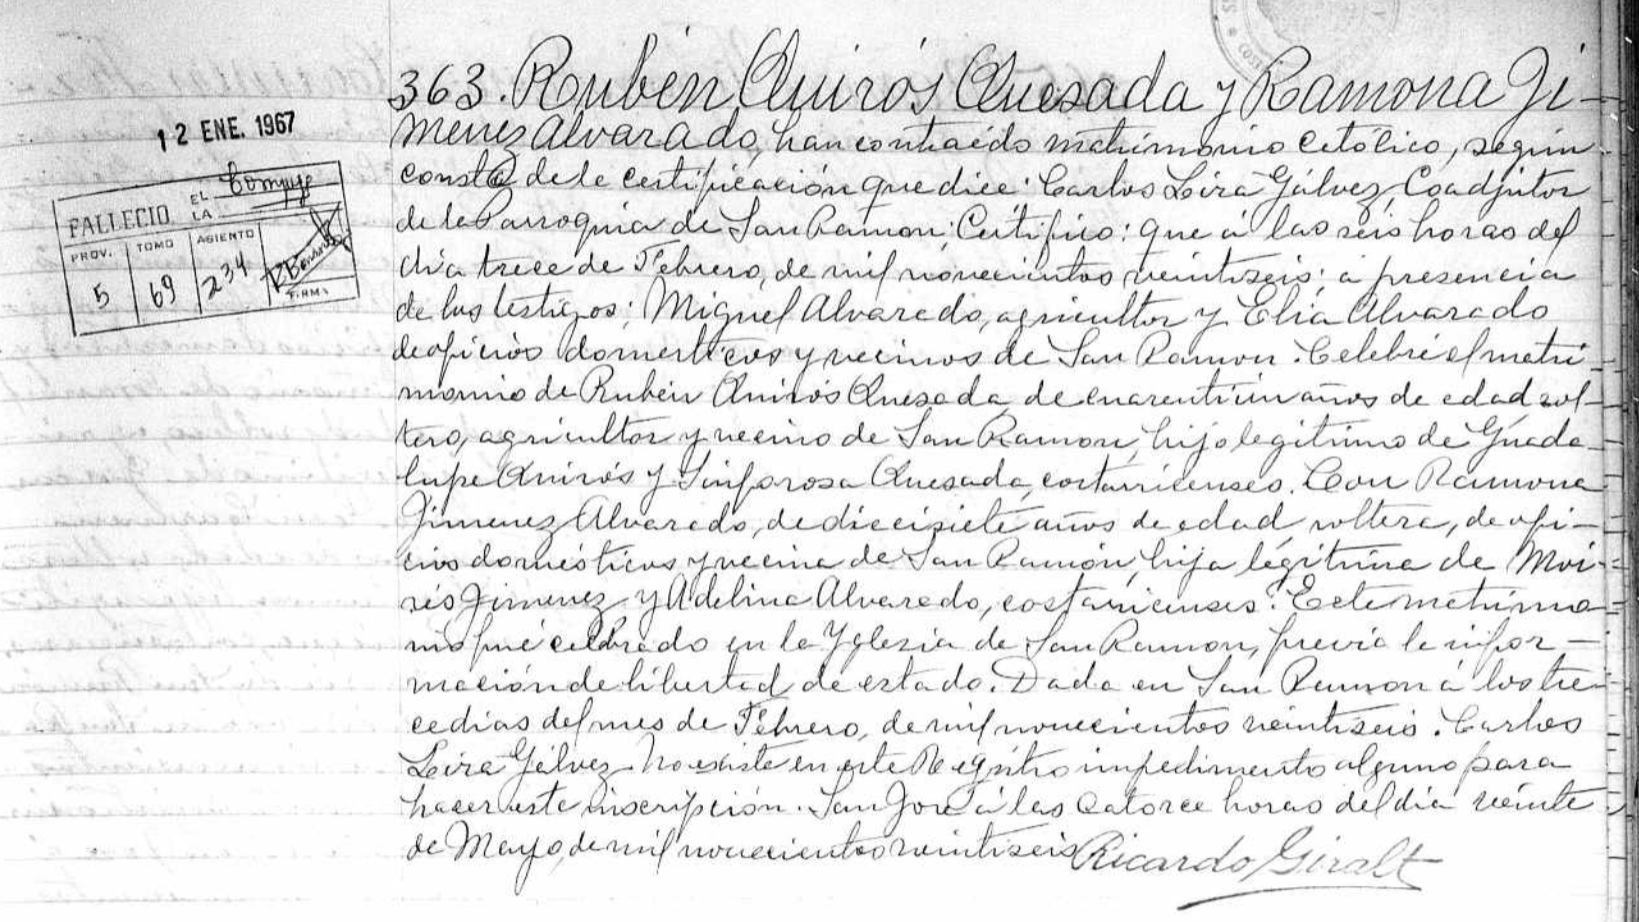 363. Rubén Quirós Quesada y Ramona Ji-
menez Alvarado, han contraído matrimonio católico, según
consta de la certificación que dice: Carlos Leiva Gálvez, Coadjutor
de la Parroquia de San Ramon; Certifico: que á las seis horas del
día trece de Febrero, de mil novecientos veintiseis; á presencia
de los testigos; Miguel Alvarado, agricultor y Elia Alvarado
de oficios domesticos y vecinos de San Ramon. Celebré el matri-
monio de Rubén Quirós Quesada, de cuarentiun años de edad, sol-
tero, agricultor y vecino de San Ramon, hijo legitimo de Guada-
lupe Quirós y Sinforosa Quesada, costarricenses. Con Ramona
Jimenez Alvarado, de diecisiete años de edad, soltera, de ofi-
cios domésticos y vecina de San Ramón, hija légitima de Moi-
sés Jimenez y Adelina Alvarado, costarricenses. Este matrimo-
nio fué celebrado en la Yglesia de San Ramon, previa la infor-
mación de libertad de estado. Dada en San Ramon á los tre-
ce días del mes de Febrero, de mil novecientos veintiseis. Carlos
Leiva Gálvez. No existe en este Registro impedimento alguno para
hacer esta inscripción. San José á las catorce horas del día veinte
de Mayo, de mil novecientos veintiseis Ricardo Giralt
12 ENE. 1967
FALLECIO EL Conyuge
LA
PROV. TOMO ASIENTO
5 69 234
FIRMA